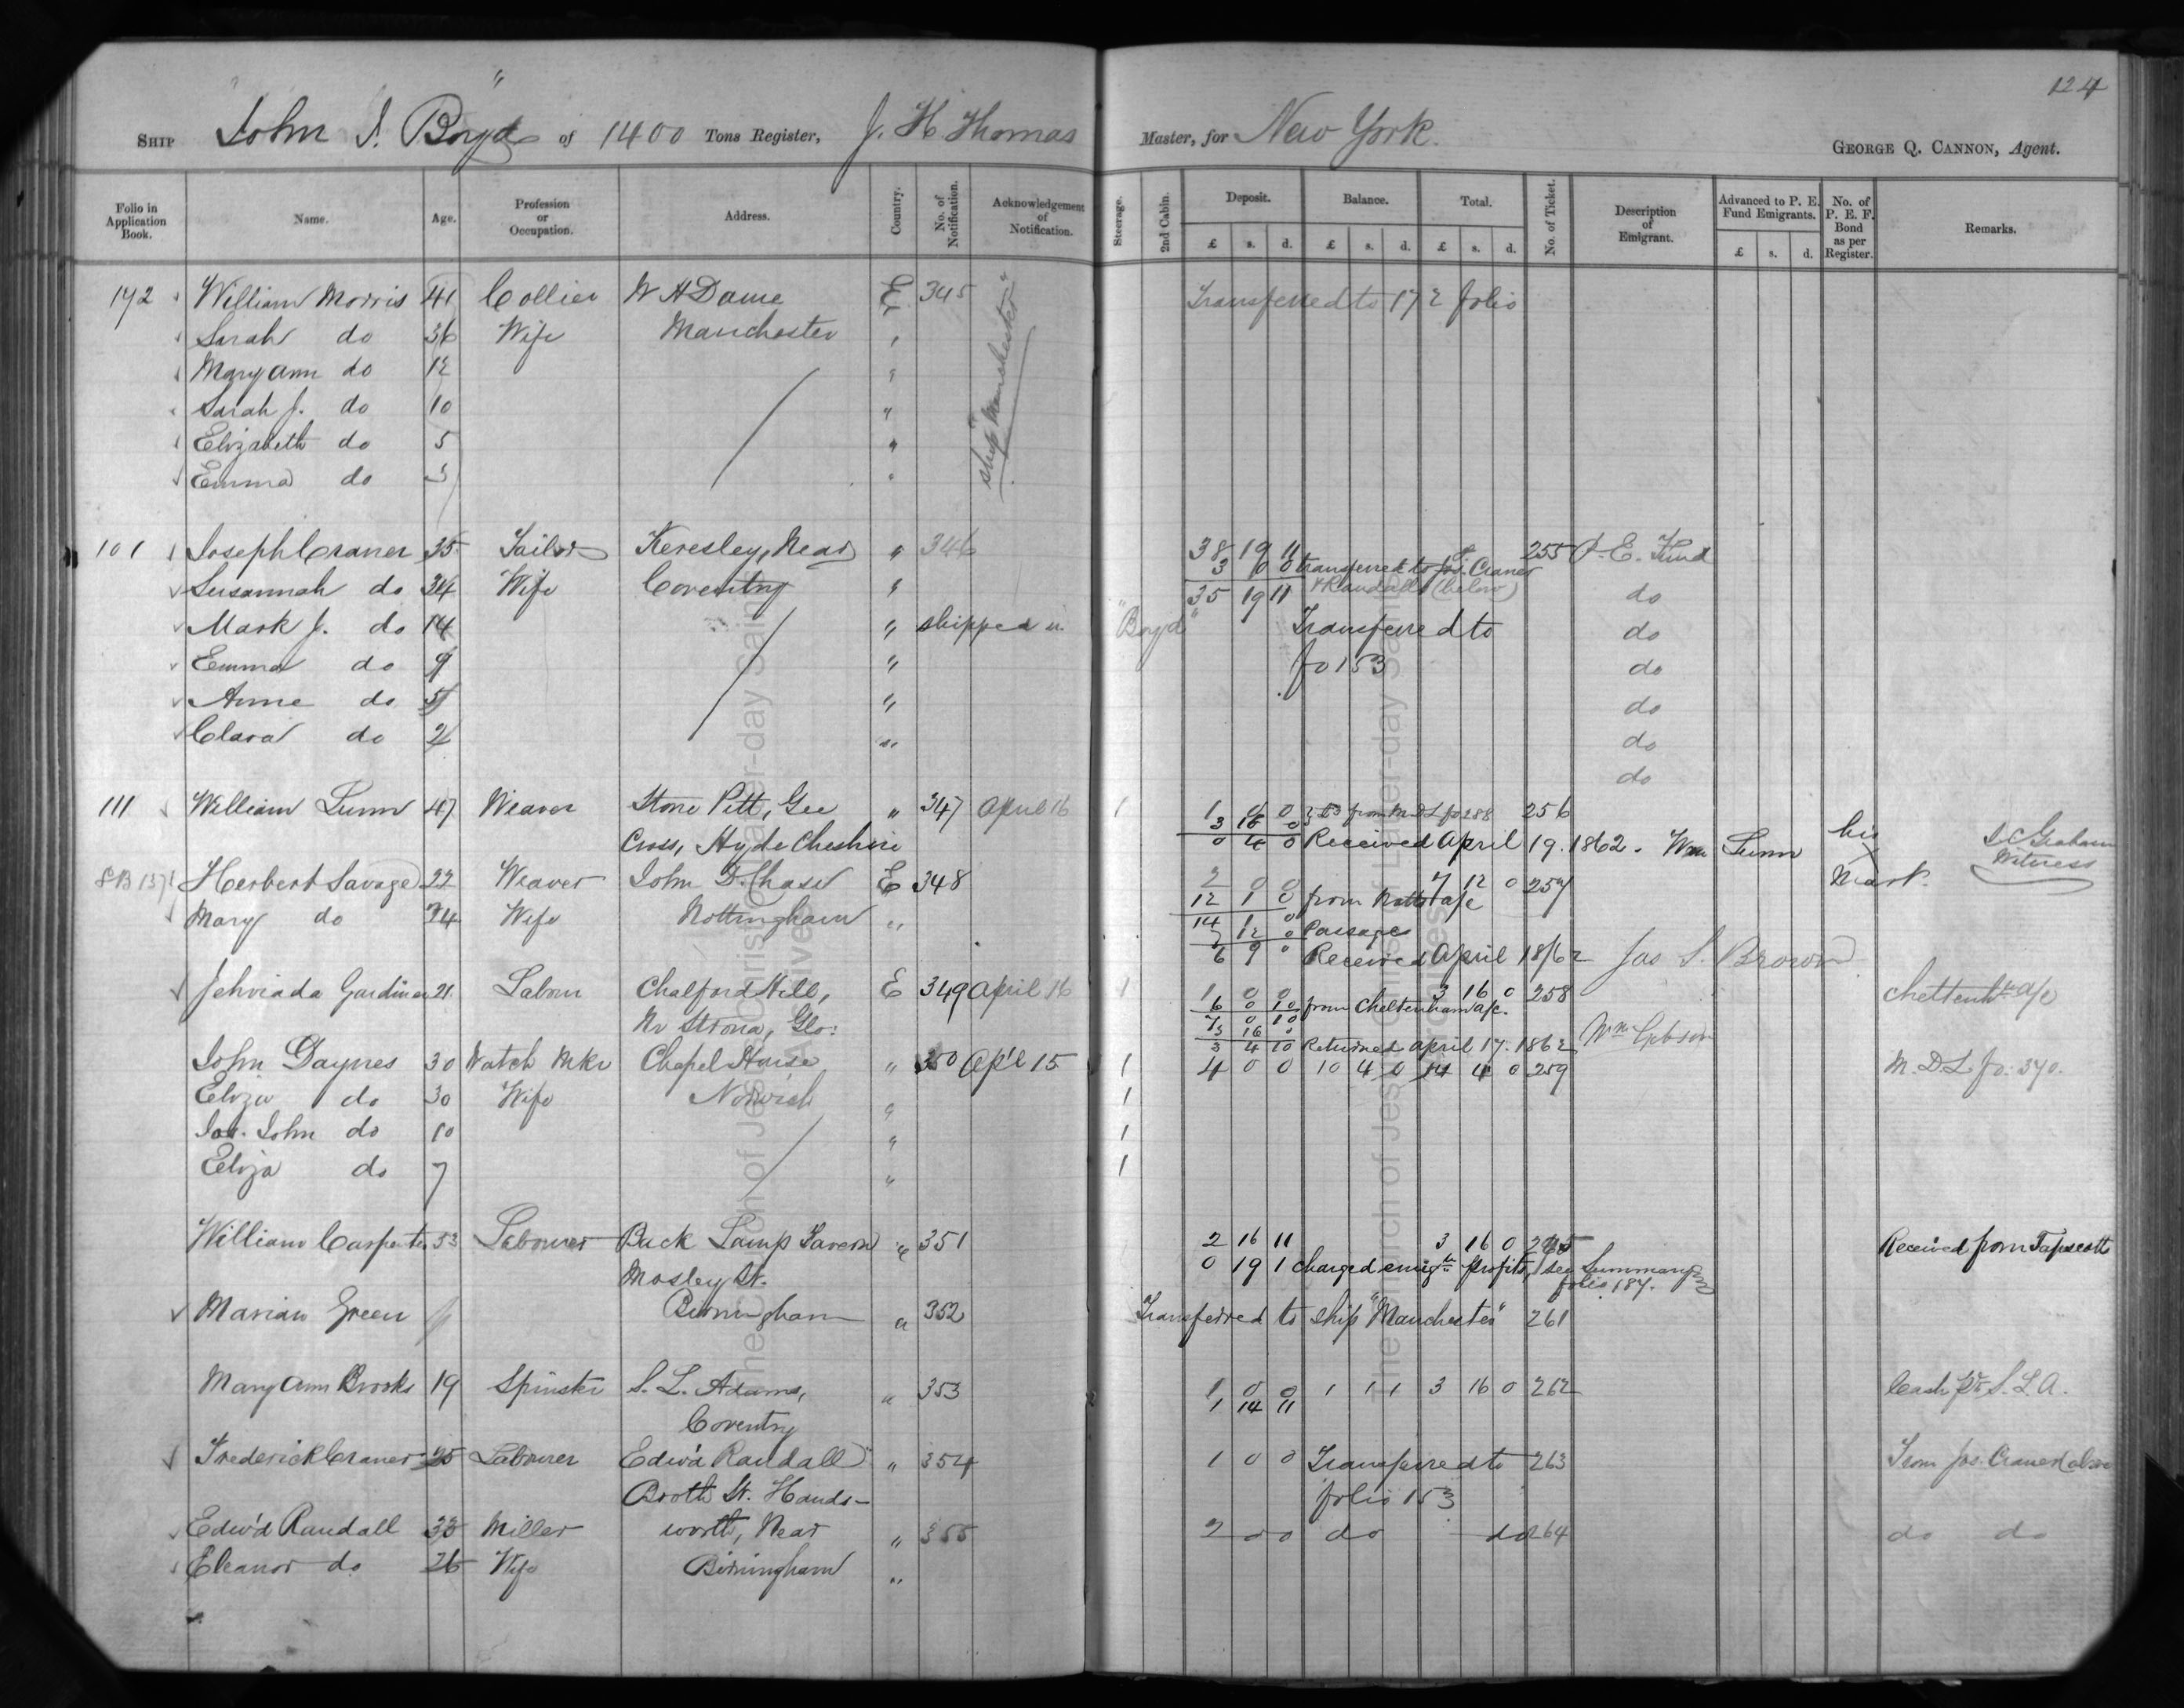 124
SHIP "John J. Boyd" of 1400 Tons Register, J. H. Thomas Master, for New York.
GEORGE Q. CANNON, Agent.
Folio in Application Book. Name. Age. Profession or Occupation. Address. Country. No. of Notification. Acknowledgement of Notification. Steerage. 2nd Cabin. Deposit. Balance. Total. No. of Ticket. Description of Emigrant. Advanced to P. E. Fund Emigrants. No. of P. E. F. Bond as per Register. Remarks.
£ s. d. £ s. d. £ s. d. £ s. d.
172 William Morris 41 Collier W H Dame E 345 Transferred to 172 folio
Sarah do 36 Wife Manchester "
Mary Ann do 12 "
Sarah J. do 10 "
Elizabeth do 5 "
Emma do 3 "
ship "Manchester"
101 Joseph Craner 35 Tailor Keresley, Near " 346 38 19 11 255 P. E. Fund
3 0 0 transferred to Jos. Craner
Susannah do 34 Wife Coventry " 35 19 11 & Randall (below) do
Mark J. do 14 " shipped in "Boyd" Transferred to do
Emma do 9 " fo 153 do
Anne do 5 " do
Clara do 2 " do
do
111 William Lunn 47 Weaver Stone Pitt, Gee " 347 April 16 1 1 0 0 £3 from M D L fo 288 256
3 16 0
Cross, Hyde Cheshire 0 4 0 Received April 19. 1862. Wm Lunn his X Mark. J C Graham Witness
SB 137 Herbert Savage 22 Weaver John D. Chase E 348 2 0 0 7 12 0 257
12 1 0 from Notts a/c
Mary do 24 Wife Nottingham " 14 1 0
7 12 0 Passages
6 9 0 Received April 18/62 Jas S. Brown
Jehoiada Gardiner 21 Labour Chalford Hill, E 349 April 16 1 1 0 0 3 16 0 258 Cheltenhm a/c
6 0 10 from Cheltenham a/c.
Nr Stroud, Glo: 7 0 10
3 16 0
3 4 10 Returned April 17. 1862 Wm Gibson
John Daynes 30 Watch Mkr Chapel House " 350 Ap'l 15 1 4 0 0 10 4 0 14 4 0 259 M. D L fo. 370.
Eliza do 30 Wife Norwich " 1
Jos. John do 10 " 1
Eliza do 7 " 1
William Carpenter 53 Labourer Back Lamp Tavern " 351 2 16 11 3 16 0 Received from Tapscott
Mosley St. 0 19 1 charged emigtn profits, see Summary folio 187.
Marian Green Birmingham " 352 Transferred to ship "Manchester" 261
Mary Ann Brooks 19 Spinster S. L. Adams, " 353 1 0 0 1 1 1 3 16 0 262 Cash pr S. L. A.
1 14 11
Coventry
Frederick Craner 25 Labourer Edwd Randall " 354 1 0 0 Transferred to 263 From Jos. Craner (above
Booth St. Hands- folio 153
Edwd Randall 33 Miller worth, Near " 355 2 0 0 do do 264 do do
Eleanor do 26 Wife Birmingham "